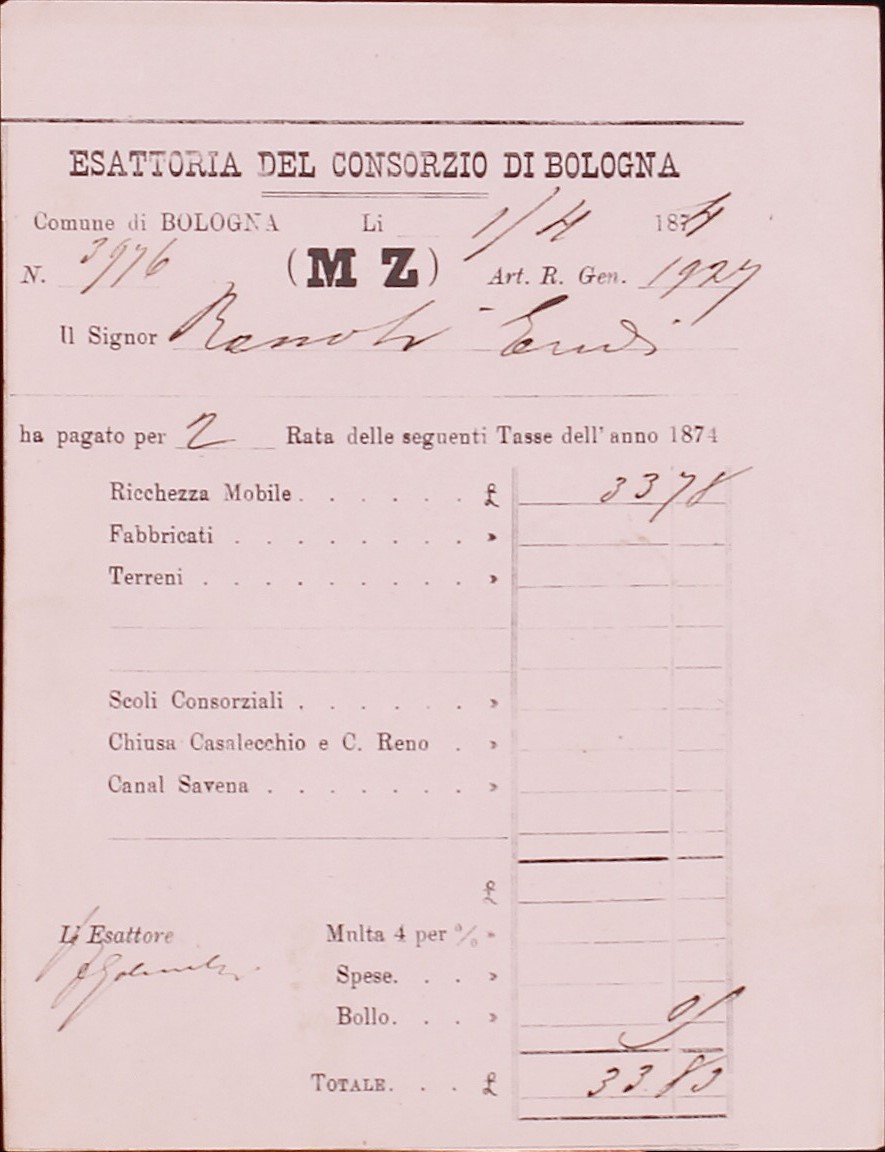 ESATTORIA DEL CONSORZIO DI BOLOGNA
Comune di BOLOGNA Li 1/4 1874
N. 3976 (M Z) Art. R. Gen. 1927
Il Signor
ha pagato per 2 Rata delle seguenti Tasse dell' anno 1874
Ricchezza Mobile . . . . . . £ 33 78
Fabbricati . . . . . . . . . »
Terreni . . . . . . . . . . »
Scoli Consorziali . . . . . . »
Chiusa Casalecchio e C. Reno . »
Canal Savena . . . . . . . »
£
L' Esattore Multa 4 per % »
Spese. . . »
Bollo. . . »
TOTALE. . . £ 33 83